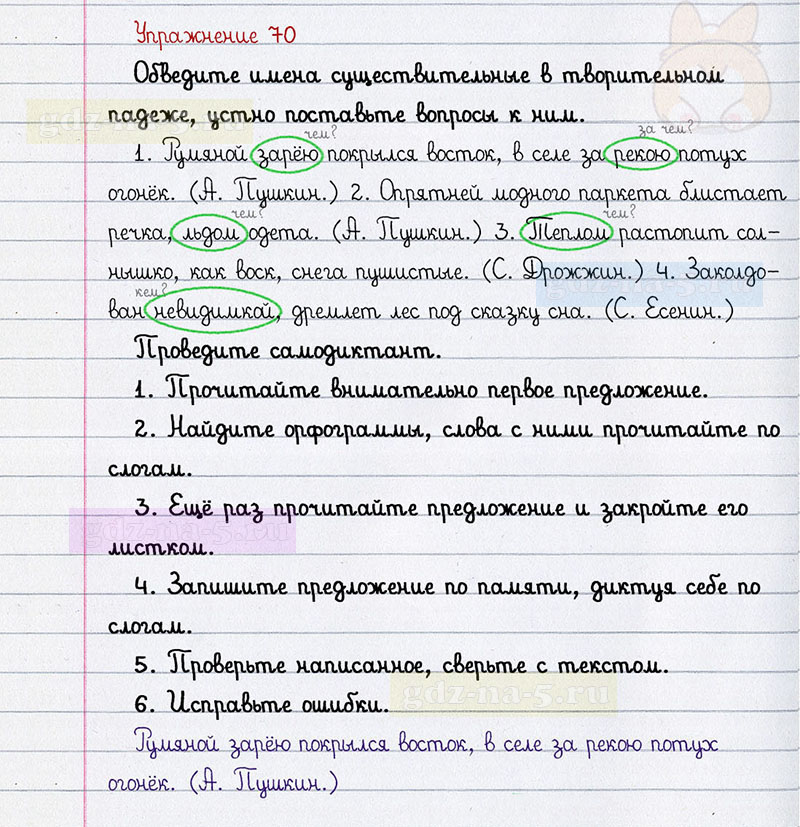 Упражнение 70
Обведите имена существительные в творительном
падеже, устно поставьте вопросы к ним.
gdz-na-5.ru
чем? за чем?
1. Румяной зарёю покрылся восток, в селе за рекою потух
огонёк. (А. Пушкин.) 2. Опрятней модного паркета блистает
чем? чем?
речка, льдом одета. (А. Пушкин.) 3. Теплом растопит сол-
нышко, как воск, снега пушистые. (С. Дрожжин.) 4. Заколдо-
gdz-na-5.ru
кем?
ван невидимкой, дремлет лес под сказку сна. (С. Есенин.)
Проведите самодиктант.
1. Прочитайте внимательно первое предложение.
2. Найдите орфограммы, слова с ними прочитайте по
слогам.
3. Ещё раз прочитайте предложение и закройте его
gdz-na-5.ru
листком.
4. Запишите предложение по памяти, диктуя себе по
слогам.
5. Проверьте написанное, сверьте с текстом.
6. Исправьте ошибки.
gdz-na-5.ru
Румяной зарёю покрылся восток, в селе за рекою потух
огонёк. (А. Пушкин.)